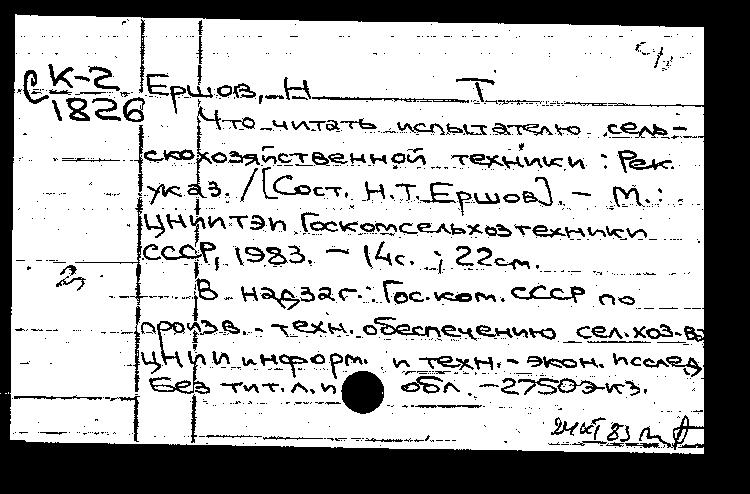 с/з
СК-2
1826
Ершов, Н Т
Что читать испытателю сель-
скохозяйственной техники : Рек.
указ. / [Сост. Н.Т. Ершов]. - М. :
ЦНИИТЭИ Госкомсельхозтехники
СССР, 1983. - 14с. ; 22см.
В надзаг. : Гос. ком. СССР по
произв. - техн. обеспечению сел. хоз-ва
ЦНИИ информ. и техн. - экон. исслед
Без тит. л. и обл. - 2750экз.
83